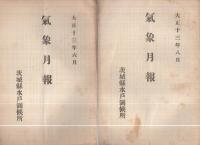 大正十三年八月
氣象月報
茨城縣水戸測候所
大正十三年六月
氣象月報
茨城縣水戸測候所